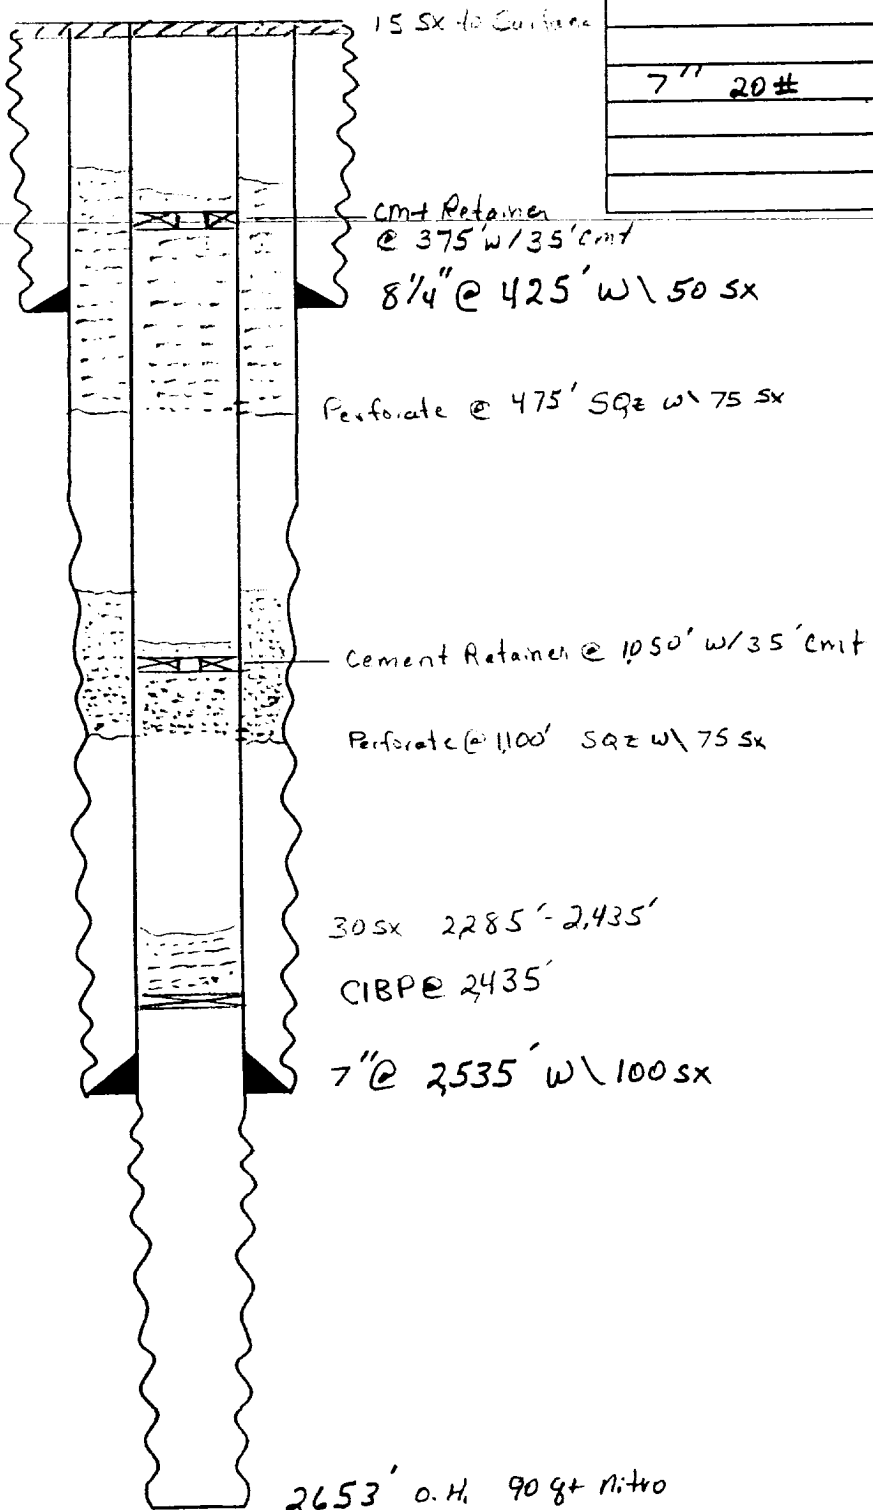 15 Sx to Surface
7" 20#
Cmt Retainer
@ 375' w/35' cmt
8 1/4" @ 425' W\ 50 sx
Perforate @ 475' SQz w\ 75 sx
Cement Retainer @ 1,050' w/35' Cmt
Perforate @ 1,100' SQz w\ 75 sx
30 sx 2,285' - 2,435'
CIBP @ 2,435'
7" @ 2,535' W\ 100 sx
2653' O.H. 90 qt nitro